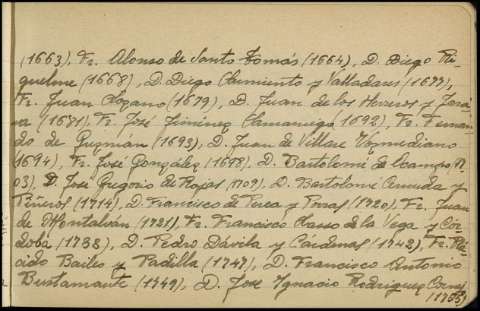 (1663), Fr. Alonso de Santo Tomás (1664), D. Diego Ri-
quelme (1668), D. Diego Clemiento y Valladares (1677),
Fr. Juan Lozano (1679), D. Juan de los Herreros y Jara-
va (1681), Fr. José Jiménez Samaniego 1692), Fr. Fernan-
do de Guzmán (1693), D. Juan de Villare Vamediano
1694), Fr. José González (1698), D. Bartolomé de Ocampo,
03), D. José Gregorio de Rojas (1709), D. Bartolome Cernuda y
Piñeros (1714), D. Francisco de Perea y Porras (1720), Fr. Juan
de Montalván (1721), Fr. Francisco Lasso de la Vega y Cór-
doba (1738), D. Pedro Dávila y Cardenas (1742), Fr. Plá-
cido Bailes y Padilla (1747), D. Francisco Antonio
Bustamante (1749), D. José Ignacio Rodriguez Corne
(1755)